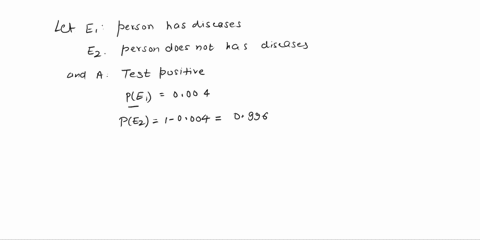 Let E1: person has diseases
E2. person does not has diseases
and A. Test positive
P(E1) = 0.004
P(E2) = 1-0.004 = 0.996